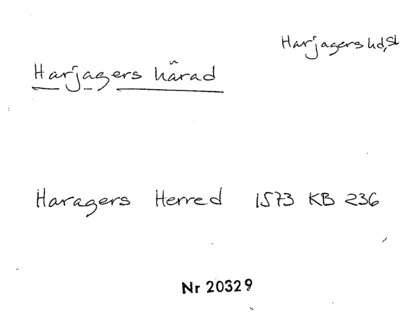 Harjagers hd, Sk
Harjagers härad
Haragers Herred 1573 KB 236
Nr 20329